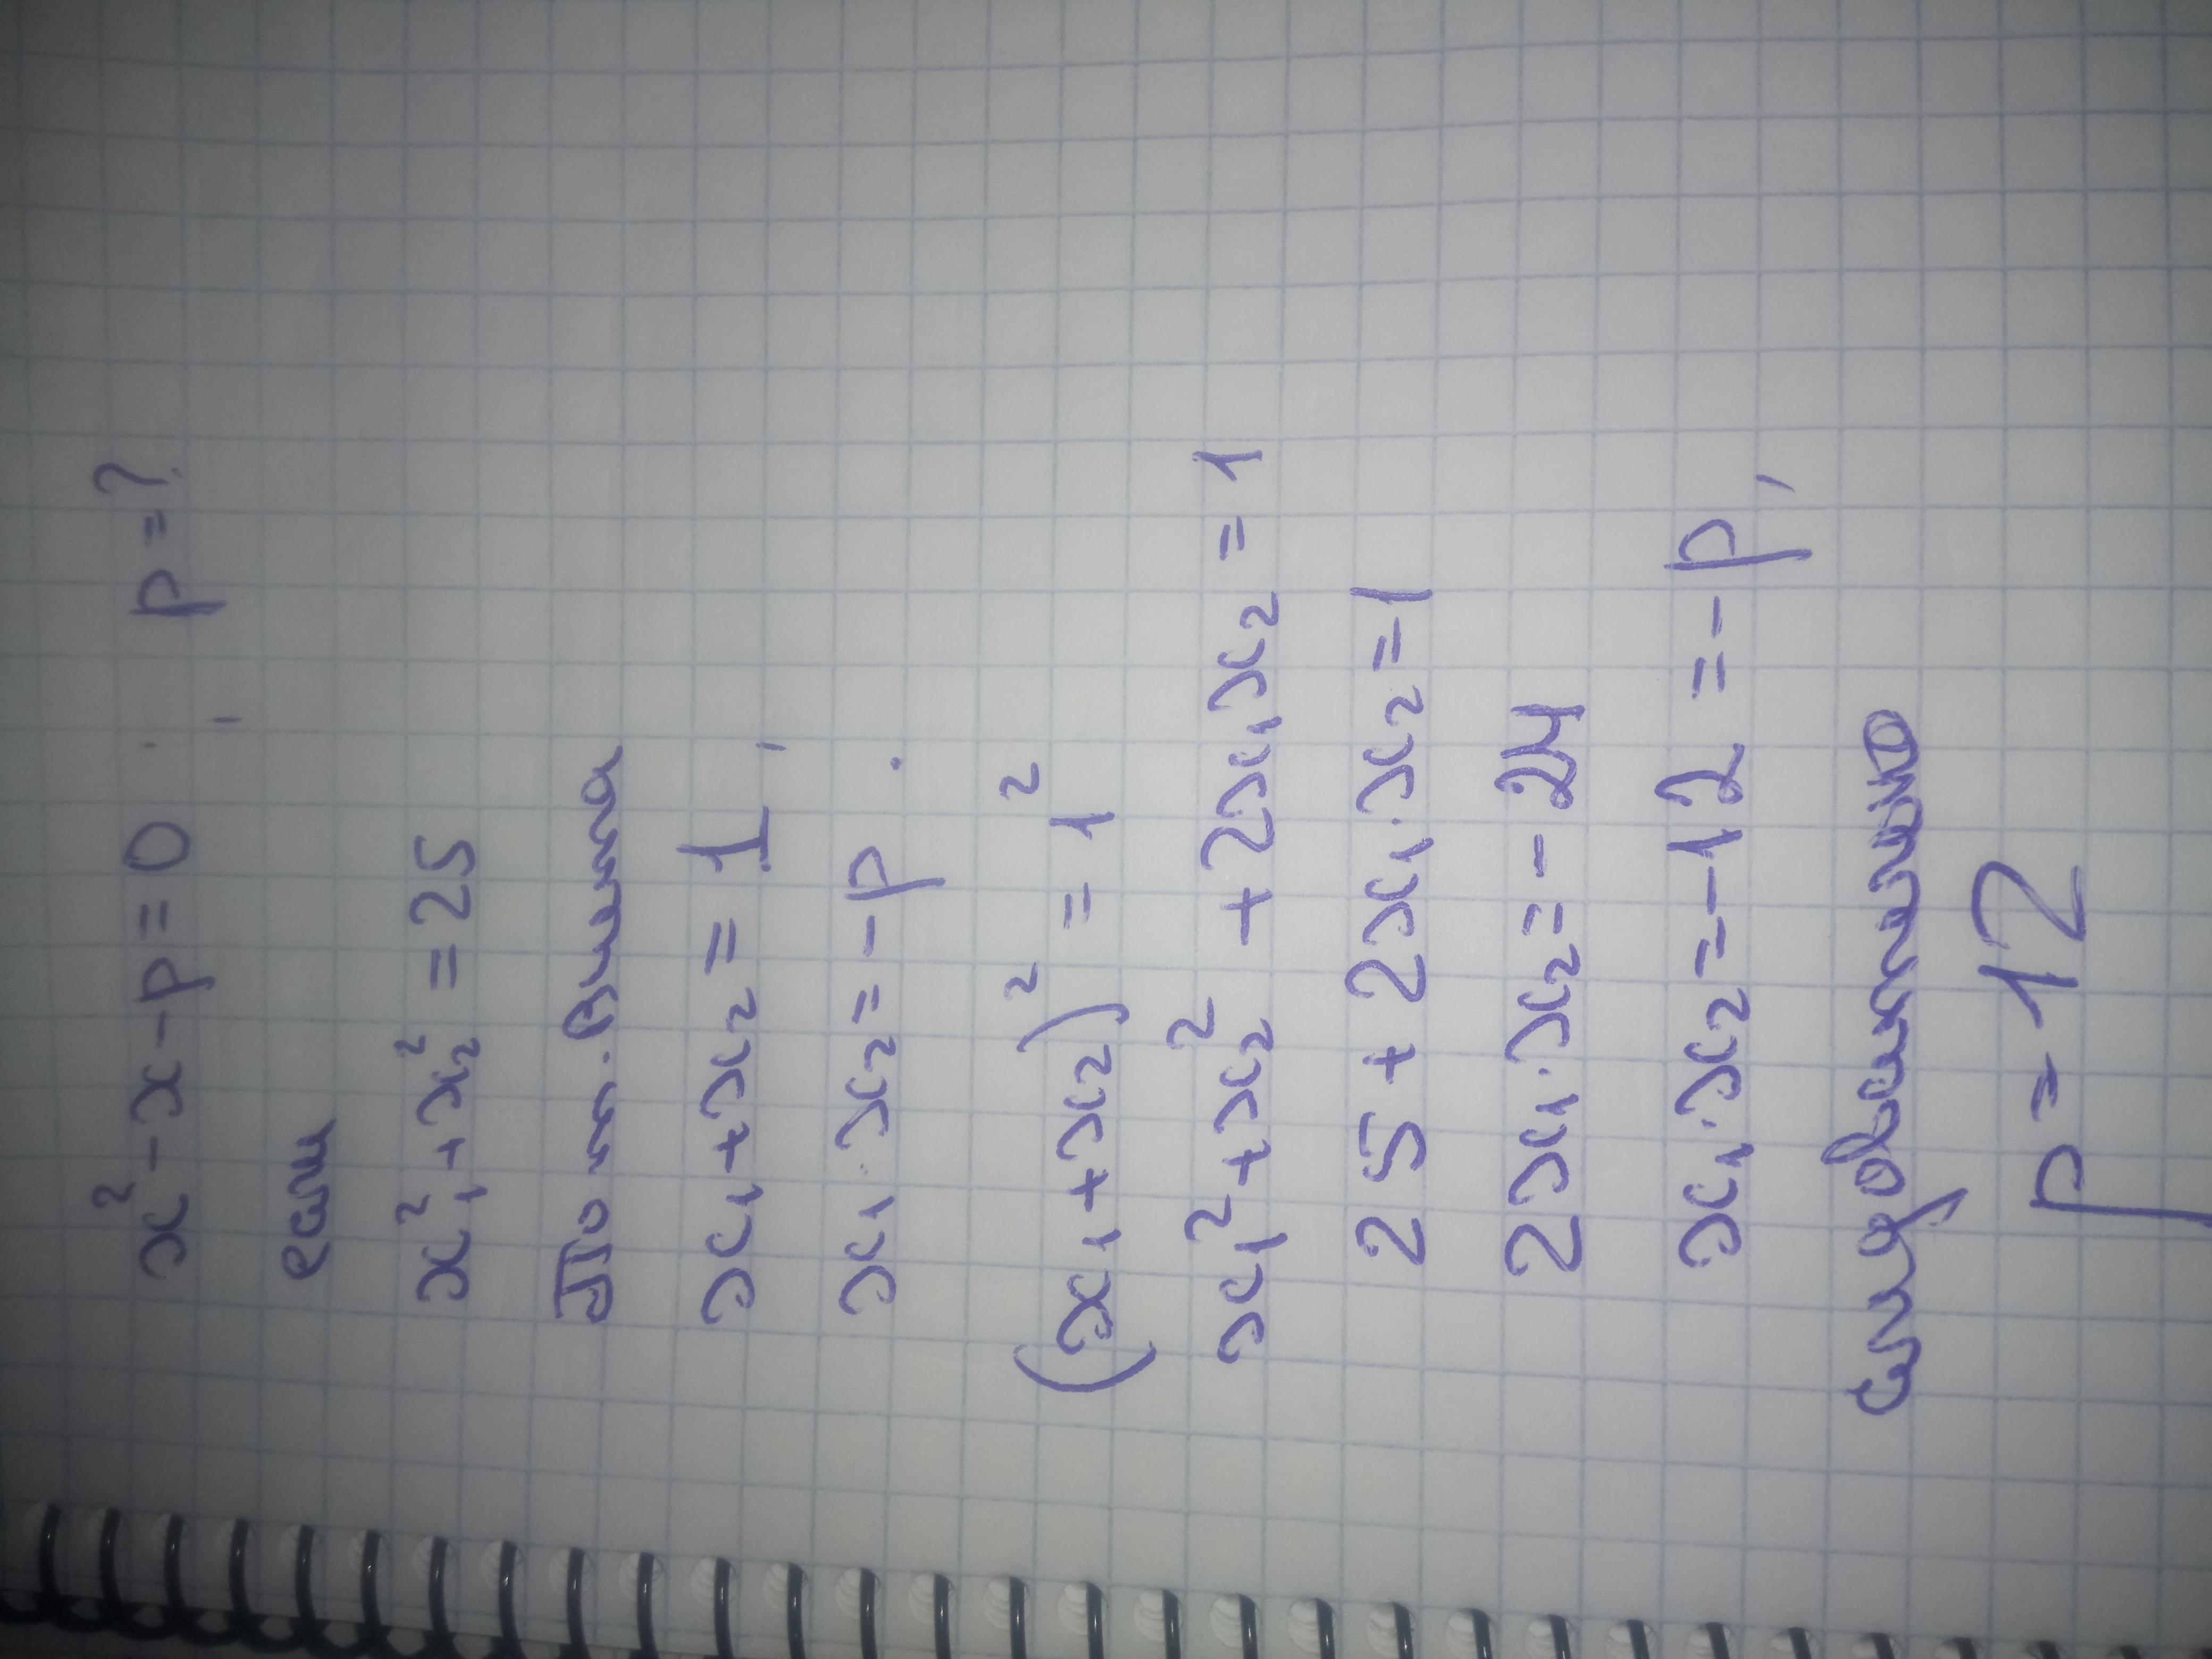 x² - x - p = 0, p = ?
если
x₁² + x₂² = 25
По т. Виета
x₁ + x₂ = 1,
x₁ · x₂ = -p.
(x₁ + x₂)² = 1²
x₁² + x₂² + 2x₁x₂ = 1
25 + 2x₁·x₂ = 1
2x₁·x₂ = -24
x₁·x₂ = -12 = -p,
следовательно
p = 12